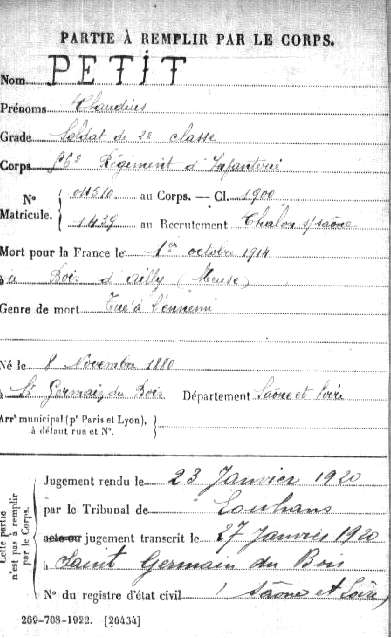 PARTIE À REMPLIR PAR LE CORPS.
Nom PETIT
Prénoms Claudius
Grade Soldat de 2e classe
Corps 56e Régiment d'Infanterie
Nº Matricule. 011510 au Corps. — Cl. 1900
1439 au Recrutement Chalon s/saône
Mort pour la France le 1er octobre 1914
à Bois d'Ailly (Meuse)
Genre de mort Tué à l'ennemi
Né le 8 Novembre 1880
à St Germain du Bois Département Saône et Loire
Arrt municipal (pr Paris et Lyon),
à défaut rue et Nº.
Cette partie n'est pas à remplir par le Corps.
Jugement rendu le 23 Janvier 1920
par le Tribunal de Louhans
acte ou jugement transcrit le 27 Janvier 1920
à Saint Germain du Bois
(Saône et Loire)
Nº du registre d'état civil
269-708-1922. [26434]